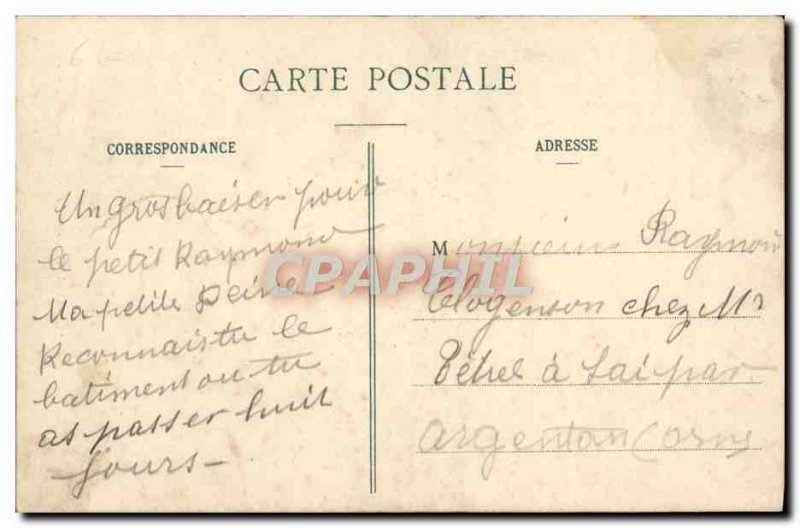 CARTE POSTALE
CORRESPONDANCE
Un gros baiser pour
le petit Raymond
Ma petite
Reconnais tu le
batiment ou tu
as passer huit
jours
CPAPHIL
ADRESSE
Monsieur Raymon
Clogenson chez Mr
à Sai par
argentan (orne